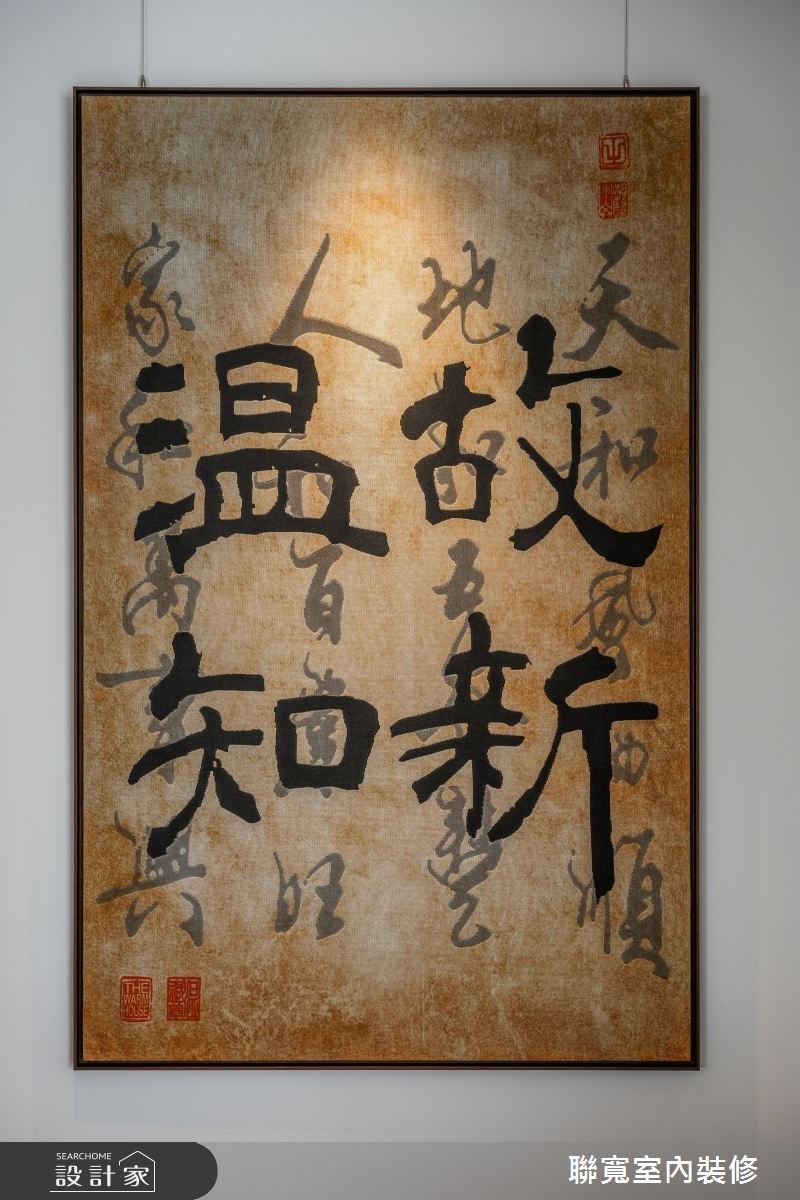 温故
知新
天和風雨順
地和五穀豐
人和百業旺
家和萬事興
THE
WARM
HOUSE
SEARCHOME
設計家
聯寬室內裝修